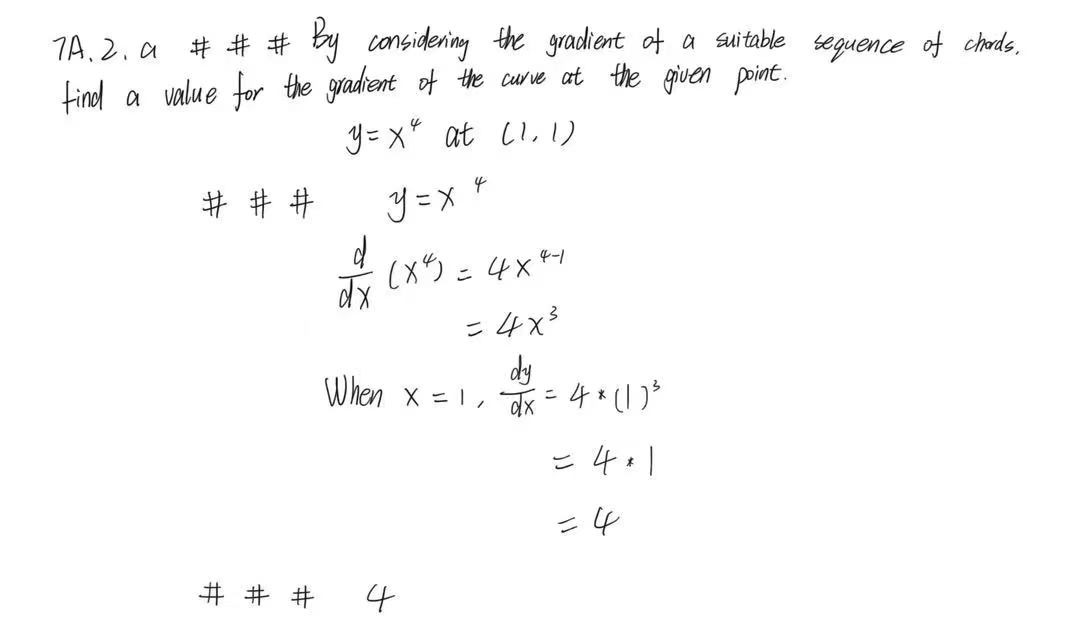 7A.2.a # # # By considering the gradient of a suitable sequence of chords,
find a value for the gradient of the curve at the given point.
y=x⁴ at (1,1)
# # # y=x⁴
d/dx (x⁴) = 4x⁴⁻¹
= 4x³
When x=1, dy/dx = 4*(1)³
= 4*1
= 4
# # # 4